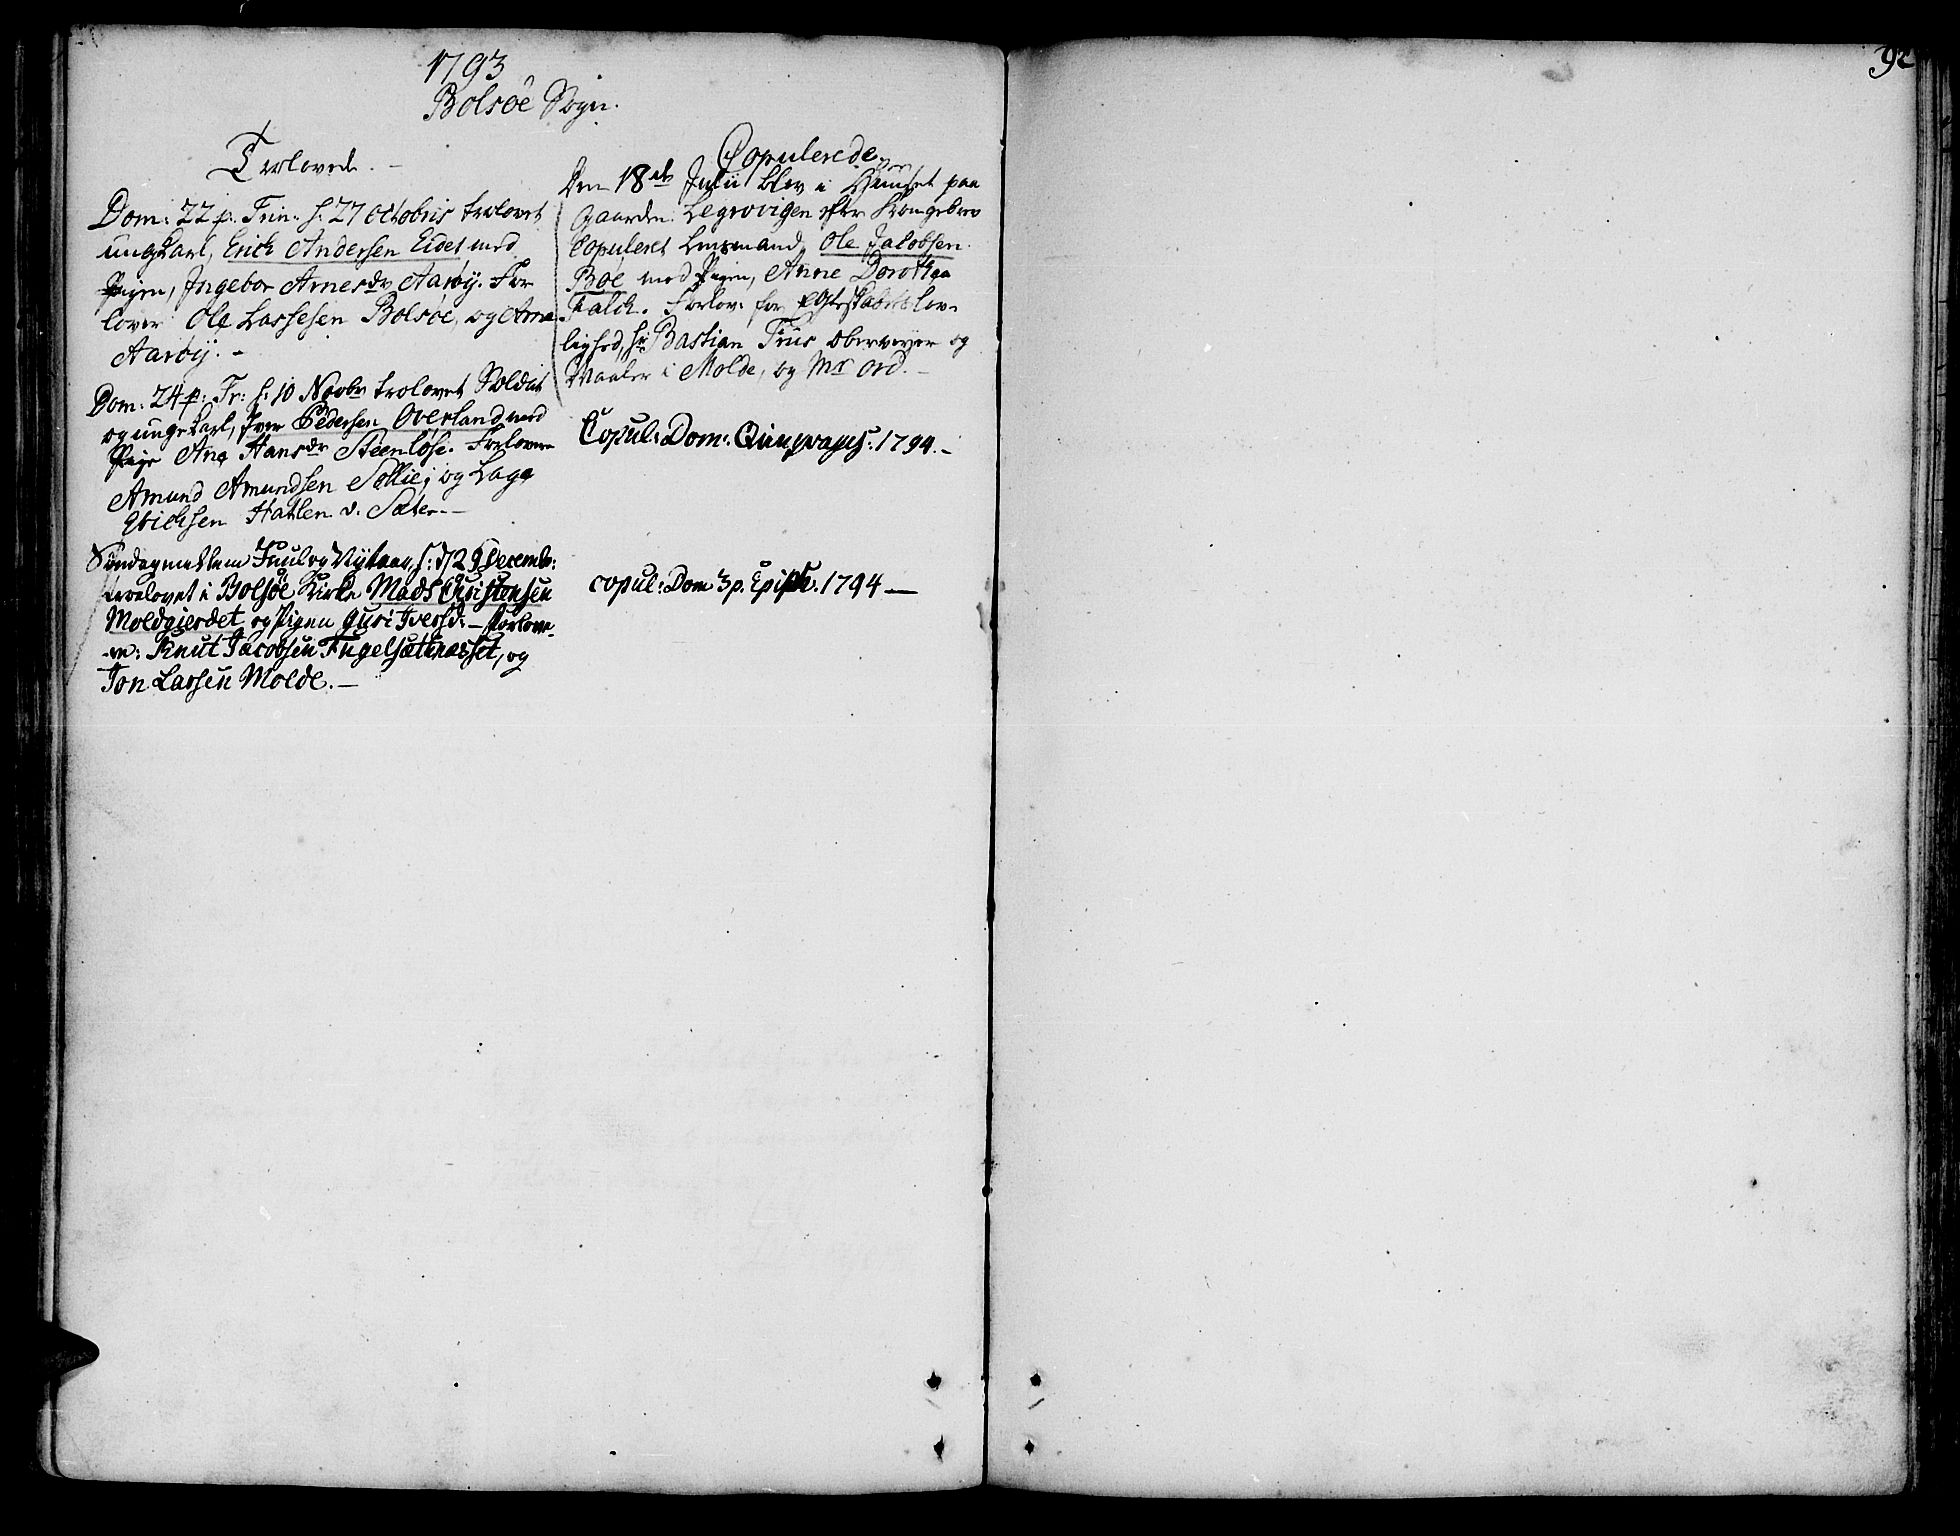 1793
Bolsöe Sogn.
Trolovede. -
Dom: 22 p. Trin: s: 27 Octobris trolovet
ungKarl, Erich Andersen Eidet med
Pigen, Ingebor Arnesdr Aaröy. For
lover Ole Lassesen Bolsöe, og Arne
Aaröy. -
Dom: 24 p: Tr: s: 10 Novbr trolovet Soldat
og ungeKarl, Iver Pedersen Overland med
Pige Ane Hansdr Steenlöse. Forlovere
Amund Amundsen Sollie, og Lage
Erichsen Hatlen v. Sæter. -
Söndag mellem Juul og Nytaar, s: d. 29 Decemb:
troelovet i Bolsöe Kirke Mads Christensen
Moldgierdet og Pigen Guri Iversd: - Forlove-
-re: Knut Jacobsen Fugelsætnæsset, og
Jon Larsen Molde. -
Copulerede.
Den 18de Julii blev i Huuset paa
Gaarden Legrovigen efter Kongebrev
Copuleret Lensmand, Ole Jacobsen
Böe med Pigen, Anne Dorothea
Falch. Forlov: for Egteskabets lov-
lighed, Hr Bastian Friis Oberveyer og
Maaler i Molde, og Mr Ord. -
Copul: Dom: Quinquages: 1794. -
copul: Dom 3 p. Epiph. 1794 -
92